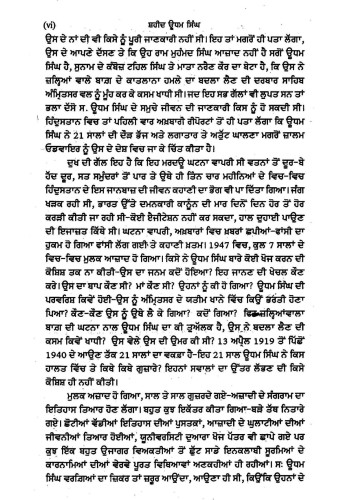 (vi) ਸ਼ਹੀਦ ਊਧਮ ਸਿੰਘ
ਉਸ ਦੇ ਨਾਂ ਦੀ ਵੀ ਕਿਸੇ ਨੂੰ ਪੂਰੀ ਜਾਣਕਾਰੀ ਨਹੀਂ ਸੀ। ਇਹ ਤਾਂ ਮਗਰੋਂ ਹੀ ਪਤਾ ਲੱਗਾ,
ਉਸ ਦੇ ਆਪਣੇ ਦੱਸਣ ਤੇ ਕਿ ਉਹ ਰਾਮ ਮੁਹੰਮਦ ਸਿੰਘ ਆਜ਼ਾਦ ਨਹੀਂ ਹੈ ਸਗੋਂ ਊਧਮ
ਸਿੰਘ ਹੈ, ਸੁਨਾਮ ਦੇ ਕੰਬੋਜ਼ ਟਹਿਲ ਸਿੰਘ ਤੇ ਮਾਤਾ ਨਰੈਣ ਕੌਰ ਦਾ ਬੇਟਾ ਹੈ, ਕਿ ਉਸ ਨੇ
ਜ਼ਲ੍ਹਿਆਂ ਵਾਲੇ ਬਾਗ਼ ਦੇ ਕਾਤਲਾਨਾ ਹਮਲੇ ਦਾ ਬਦਲਾ ਲੈਣ ਦੀ ਦਰਬਾਰ ਸਾਹਿਬ
ਅੰਮ੍ਰਿਤਸਰ ਵਲ ਨੂੰ ਮੂੰਹ ਕਰ ਕੇ ਕਸਮ ਖਾਧੀ ਸੀ। ਜਦ ਇਹ ਸਭ ਗੱਲਾਂ ਵੀ ਲੁਪਤ ਸਨ ਤਾਂ
ਭਲਾ ਦੱਸੋ ਸ. ਊਧਮ ਸਿੰਘ ਦੇ ਸਮੁਚੇ ਜੀਵਨ ਦੀ ਜਾਣਕਾਰੀ ਕਿਸ ਨੂੰ ਹੋ ਸਕਦੀ ਸੀ।
ਹਿੰਦੁਸਤਾਨ ਵਿਚ ਤਾਂ ਪਹਿਲੀ ਵਾਰ ਅਖ਼ਬਾਰੀ ਰੀਪੋਰਟਾਂ ਤੋਂ ਹੀ ਪਤਾ ਲੱਗਾ ਕਿ ਊਧਮ ਸਿੰਘ
ਸਿੰਘ ਨੇ 21 ਸਾਲਾਂ ਦੀ ਦੌੜ ਭੱਜ ਅਤੇ ਲਗਾਤਾਰ ਤੇ ਅਤੁੱਟ ਘਾਲਣਾ ਮਗਰੋਂ ਜ਼ਾਲਮ
ਓਡਵਾਇਰ ਨੂੰ ਉਸ ਦੇ ਦੇਸ਼ ਵਿਚ ਜਾ ਕੇ ਚਿੱਤ ਕੀਤਾ ਹੈ।
ਦੁਖ ਦੀ ਗੱਲ ਇਹ ਹੈ ਕਿ ਇਹ ਮਰਦਊ ਘਟਨਾ ਵਾਪਰੀ ਸੀ ਵਤਨਾਂ ਤੋਂ ਦੂਰ-ਬੇ
ਹੱਦ ਦੂਰ, ਸਤ ਸਮੁੰਦਰਾਂ ਤੋਂ ਪਾਰ ਤੇ ਉਥੇ ਹੀ ਤਿੰਨ ਚਾਰ ਮਹੀਨਿਆਂ ਦੇ ਵਿਚ-ਵਿਚ
ਹਿੰਦੁਸਤਾਨ ਦੇ ਇਸ ਜਾਨਬਾਜ਼ ਦੀ ਜੀਵਨ ਕਹਾਣੀ ਦਾ ਭੋਗ ਵੀ ਪਾ ਦਿਤਾ ਗਿਆ। ਜੰਗ
ਖੜਕ ਰਹੀ ਸੀ, ਭਾਰਤ ਉੱਤੇ ਦਮਨਕਾਰੀ ਕਾਨੂੰਨ ਦੀ ਮਾਰ ਦਿਨੋਂ ਦਿਨ ਹੋਰ ਤੋਂ ਹੋਰ
ਕਰੜੀ ਕੀਤੀ ਜਾ ਰਹੀ ਸੀ-ਕੋਈ ਏਜੀਟੇਸ਼ਨ ਨਹੀਂ ਕਰ ਸਕਦਾ, ਹਾਲ ਦੁਹਾਈ ਪਾਉਣ
ਦੀ ਇਜਾਜ਼ਤ ਕਿੱਥੇ ਸੀ। ਘਟਨਾ ਵਾਪਰੀ, ਅਖ਼ਬਾਰਾਂ ਵਿਚ ਖ਼ਬਰਾਂ ਛਪੀਆਂ-ਫਾਂਸੀ ਦਾ
ਹੁਕਮ ਹੋ ਗਿਆ ਫਾਂਸੀ ਲੱਗ ਗਈ-ਤੇ ਕਹਾਣੀ ਖ਼ਤਮ। 1947 ਵਿਚ, ਕੁਲ 7 ਸਾਲਾਂ ਦੇ
ਵਿਚ-ਵਿਚ ਮੁਲਕ ਆਜ਼ਾਦ ਹੋ ਗਿਆ। ਕਿਸੇ ਨੇ ਊਧਮ ਸਿੰਘ ਬਾਰੇ ਕੋਈ ਖੋਜ ਕਰਨ ਦੀ
ਕੋਸ਼ਿਸ਼ ਤਕ ਨਾ ਕੀਤੀ-ਉਸ ਦਾ ਜਨਮ ਕਦੋਂ ਹੋਇਆ? ਇਹ ਜਾਣਨ ਦੀ ਖੇਚਲ ਕੌਣ
ਕਰੇ। ਉਸ ਦਾ ਬਾਪ ਕੌਣ ਸੀ? ਮਾਂ ਕੌਣ ਸੀ? ਉਹਨਾਂ ਨੂੰ ਕੀ ਹੋ ਗਿਆ? ਊਧਮ ਸਿੰਘ ਦੀ
ਪਰਵਰਿਸ਼ ਕਿਵੇਂ ਹੋਈ-ਉਸ ਨੂੰ ਅੰਮ੍ਰਿਤਸਰ ਦੇ ਯਤੀਮ ਖਾਨੇ ਵਿੱਚ ਕਿਉਂ ਭਰਤੀ ਹੋਣਾ
ਪਿਆ? ਕੌਣ-ਕੌਣ ਉਸ ਨੂੰ ਉਥੇ ਲੈ ਕੇ ਗਿਆ? ਕਦੋਂ ਗਿਆ? ਫਿਰ ਜ਼ਲ੍ਹਿਆਂਵਾਲਾ
ਬਾਗ਼ ਦੀ ਘਟਨਾ ਨਾਲ ਊਧਮ ਸਿੰਘ ਦਾ ਕੀ ਤੁਅੱਲਕ ਹੈ, ਉਸ ਨੇ ਬਦਲਾ ਲੈਣ ਦੀ
ਕਸਮ ਕਿਵੇਂ ਖਾਧੀ? ਉਸ ਵੇਲੇ ਉਸ ਦੀ ਉਮਰ ਕੀ ਸੀ? 13 ਅਪ੍ਰੈਲ 1919 ਤੋਂ ਪਿੱਛੋਂ
1940 ਦੇ ਆਉਣ ਤੱਕ 21 ਸਾਲਾਂ ਦਾ ਵਕਫ਼ਾ ਹੈ-ਇਹ 21 ਸਾਲ ਊਧਮ ਸਿੰਘ ਨੇ ਕਿਸ
ਹਾਲਤ ਵਿੱਚ ਤੇ ਕਿਥੇ ਕਿਥੇ ਗੁਜ਼ਾਰੇ? ਇਹਨਾਂ ਸਵਾਲਾਂ ਦਾ ਉੱਤਰ ਲੱਭਣ ਦੀ ਕਿਸੇ
ਕੋਸ਼ਿਸ਼ ਹੀ ਨਹੀਂ ਕੀਤੀ।
ਮੁਲਕ ਅਜ਼ਾਦ ਹੋ ਗਿਆ, ਸਾਲ ਤੇ ਸਾਲ ਗੁਜ਼ਰਦੇ ਗਏ-ਅਜ਼ਾਦੀ ਦੇ ਸੰਗਰਾਮ ਦਾ
ਇਤਿਹਾਸ ਤਿਆਰ ਹੋਣ ਲੱਗਾ। ਬਹੁਤ ਕੁਝ ਇਕੱਤਰ ਕੀਤਾ ਗਿਆ-ਬੜੇ ਤੱਥ ਨਿਤਾਰੇ
ਗਏ। ਛੋਟੀਆਂ ਵੱਡੀਆਂ ਇਤਿਹਾਸ ਦੀਆਂ ਪੁਸਤਕਾਂ, ਆਜ਼ਾਦੀ ਦੇ ਘੁਲਾਟੀਆਂ ਦੀਆਂ
ਜੀਵਨੀਆਂ ਤਿਆਰ ਹੋਈਆਂ, ਯੂਨੀਵਰਸਿਟੀ ਦੁਆਰਾ ਖੋਜ ਪੱਤਰ ਵੀ ਛਾਪੇ ਗਏ ਪਰ
ਕੁਝ ਇੱਕ ਬਹੁਤ ਉਜਾਗਰ ਵਿਅਕਤੀਆਂ ਤੋਂ ਛੁੱਟ ਸਾਡੇ ਇਨਕਲਾਬੀ ਸੂਰਮਿਆਂ ਦੇ
ਕਾਰਨਾਮਿਆਂ ਦੀਆਂ ਵੇਰਵੇ ਪੂਰਤ ਵਿਥਿਆਵਾਂ ਅਣਕਹੀਆਂ ਹੀ ਰਹੀਆਂ। ਸ: ਊਧਮ
ਸਿੰਘ ਵਰਗਿਆਂ ਦਾ ਜ਼ਿਕਰ ਤਾਂ ਜ਼ਰੂਰ ਆਉਂਦਾ, ਆਉਣਾ ਹੀ ਸੀ, ਕਿਉਂਕਿ ਉਹਨਾਂ ਦੇ